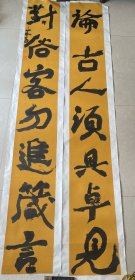 論古人須具卓見
對俗客勿進箴言